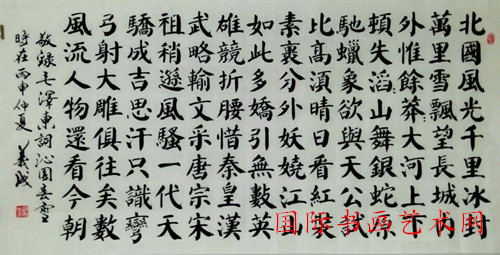 北國風光千里冰封
萬里雪飄望長城内
外惟餘莽大河上下
頓失滔山舞銀蛇原
馳蠟象欲與天公試
比高湏晴日看紅裝
素裹分外妖嬈江山
如此多嬌引無數英
雄競折腰惜秦皇漢
武略輸文采唐宗宋
祖稍遜風騷一代天
驕成吉思汗只識彎
弓射大雕俱往矣數
風流人物還看今朝
敬錄毛澤東詞沁園春雪
時在丙申仲夏
国际书画艺术网